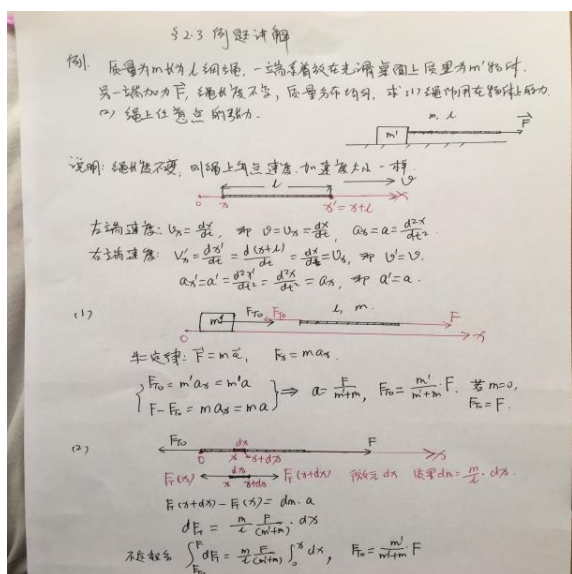 §2.3 例题讲解
例. 质量为m长为l细绳,一端系着放在光滑桌面上质量为m'物体.
另一端加力F⃗,绳长度不变,质量分布均匀,求(1)绳作用在物体上的力
(2) 绳上任意点的张力.
m, l
F⃗
m'
说明: 绳长度不变,则绳上各点速度.加速度大小一样
l
v
0 x x'=x+l x
左端速度: Vx = dx/dt, 即 v = Vx = dx/dt, ax = a = d²x/dt².
右端速度: Vx' = dx'/dt = d(x+l)/dt = dx/dt = Vx, 即 v' = v.
ax' = a' = d²x'/dt² = d²x/dt² = ax, 即 a' = a.
(1)
m' FT0 FT0 l, m. F
0 x
牛定律: F⃗ = ma⃗, Fx = max.
{ FT0 = m'ax = m'a
F - FT0 = max = ma } ⟹ a = F/(m'+m), FT0 = m'/(m'+m)·F. 若m=0,
FT0 = F.
(2)
FT0 dx F
0 x x+dx x
FT(x) dx FT(x+dx) 微元dx 质量dm = m/l · dx.
x x+dx
FT(x+dx) - FT(x) = dm·a
dFT = m/l F/(m'+m) · dx
∫_{FT0}^{F} dFT = m/l F/(m'+m) ∫_0^x dx, FT0 = m'/(m'+m)·F